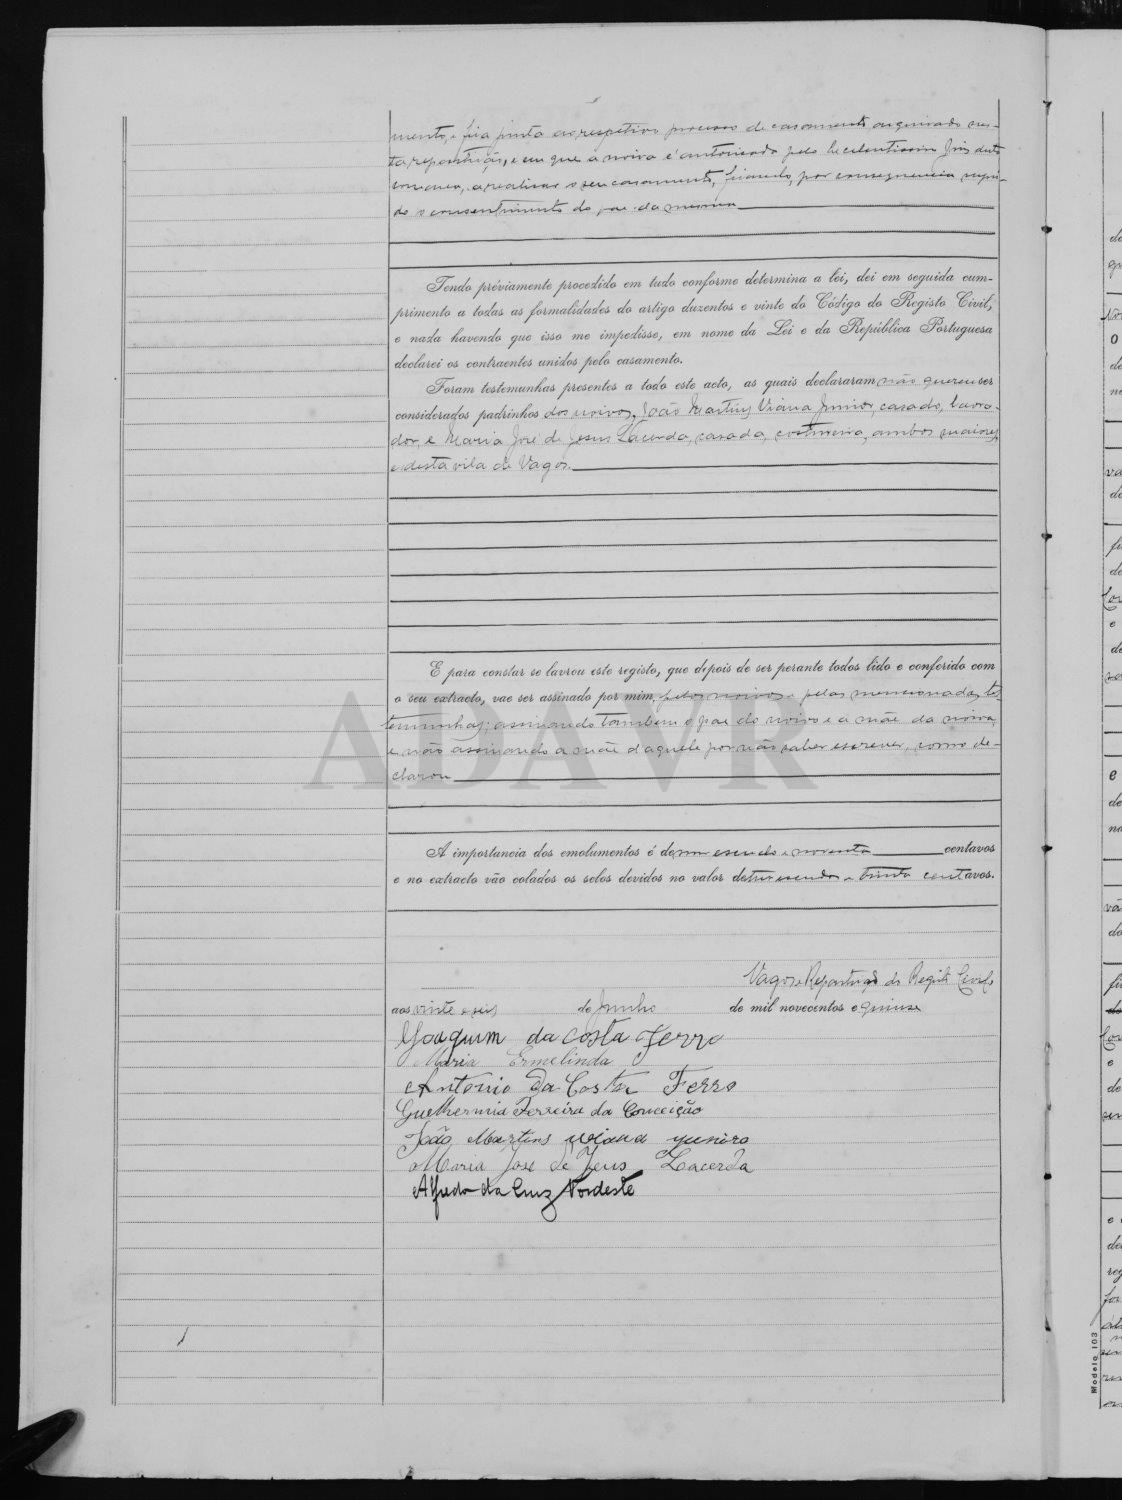 mento, e fica junta ao respetivo processo de casamento arquivado nes-
ta repartição, e em que a noiva é autorisada pelo Juis desta
comarca, a realisar o seu casamento, ficando, por consequencia supri-
do o consentimento do pae da mesma
Tendo préviamente procedido em tudo conforme determina a lei, dei em seguida cum-
primento a todas as formalidades do artigo duzentos e vinte do Código do Registo Civil,
e nada havendo que isso me impedisse, em nome da Lei e da República Portuguesa
declarei os contraentes unidos pelo casamento.
Foram testemunhas presentes a todo este acto, as quais declararam não querem ser
considerados padrinhos dos noivos, João Martins Viana Junior, casado, lavra-
dor, e Maria José de Jesus Lacerda, casada, costureira, ambos maiores,
e desta vila de Vagos.
E para constar se lavrou este registo, que depois de ser perante todos lido e conferido com
o seu extracto, vae ser assinado por mim, pelos noivos e pelas mencionadas tes-
temunhas; assinando tambem o pae do noivo e a mãe da noiva,
e não assinando a mãe daquele por não saber escrever, como de-
clarou
A importancia dos emolumentos é de um escudo e noventa centavos
e no extracto vão colados os selos devidos no valor de tres escudos e trinta centavos.
Vagos e Repartição do Registo Civil,
aos vinte e seis de Junho de mil novecentos e quinze
Joaquim da Costa Ferro
Maria Ermelinda
Antonio da Costa Ferro
Guelhermia Ferreira da Conceição
João Martins Viana Juniro
Maria José de Jeus Lacerda
Alfredo da Cruz Nordeste
ADAVR
Modelo 103